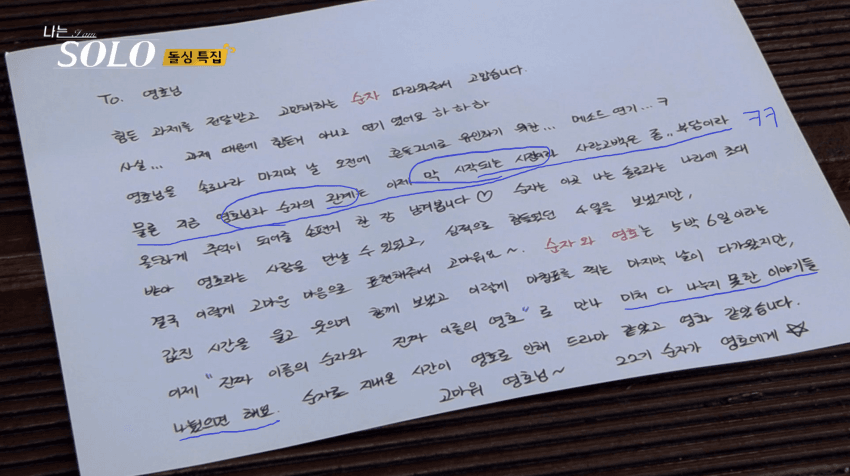 나는 I am
SOLO 돌싱 특집
To. 영호님
힘든 과제를 전달받고 고민하는 순자 따라와주셔서 고맙습니다.
사실... 과제 때문에 힘든거 아니고 연기 였어요 하 하 하
영호님을 솔로나라 마지막 날 오전에 혼돈지대로 유인하기 위한... 메소드 연기...ㅋ ㅋㅋ
물론 지금 영호님과 순자의 관계는 이제 막 시작되는 시점이라 사랑고백은 좀.. 부담이라
올드하게 추억이 되어줄 손편지 한 장 남겨봅니다♡ 순자는 이곳 나는 솔로라는 나라에 초대
받아 영호라는 사람을 만날 수 있었고, 심적으로 힘들었던 4일을 보냈지만,
결국 이렇게 고마운 마음으로 표현해주셔 고마워요~. 순자와 영호는 5박 6일이라는
값진 시간을 울고 웃으며 함께 보냈고 이렇게 마침표를 찍는 마지막 날이 다가왔지만,
이제 "진짜 이름의 순자와 진짜 이름의 영호"로 만나 미처 다 나누지 못한 이야기들
나눴으면 해요. 순자로 지내온 시간이 영호로 인해 드라마 같았고 영화 같았습니다.
고마워 영호님~ 22기 순자가 영호에게☆